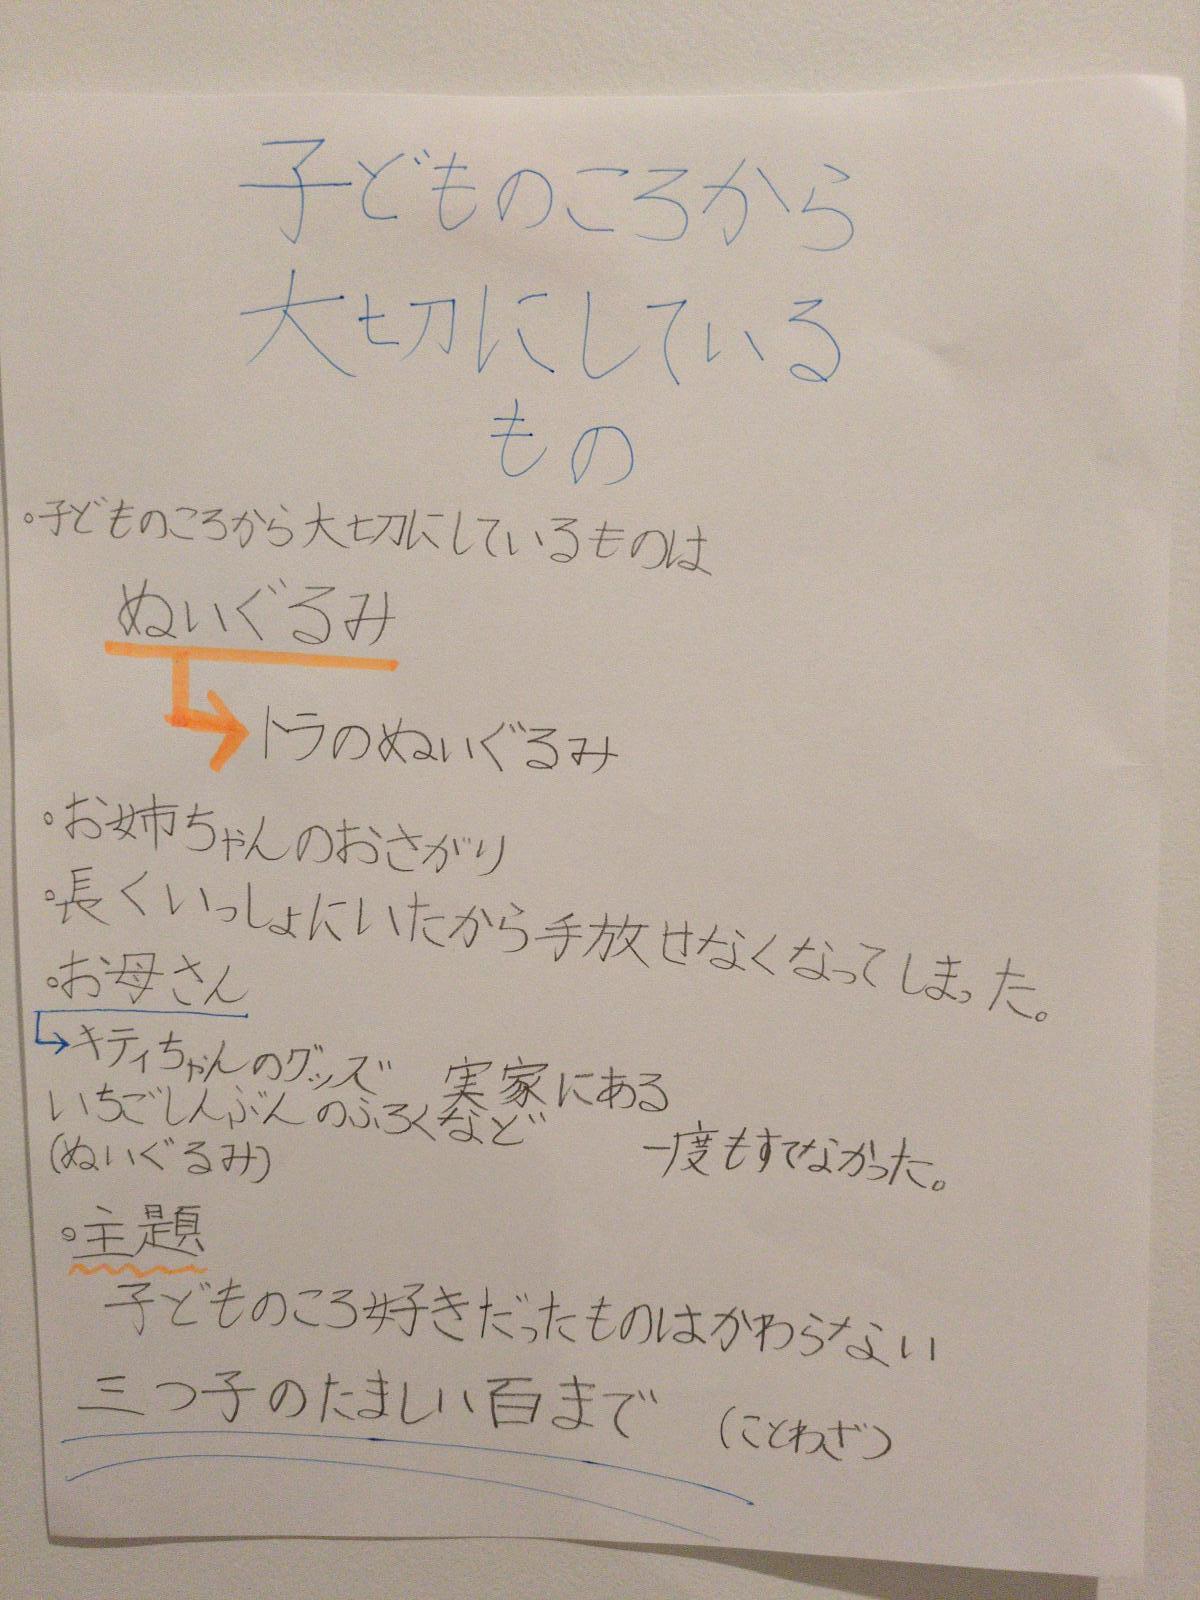 子どものころから
大切にしている
もの
。子どものころから大切にしているものは
ぬいぐるみ
トラのぬいぐるみ
。お姉ちゃんのおさがり
。長くいっしょにいたから手放せなくなってしまった。
。お母さん
キティちゃんのグッズ 実家にある
いちごしんぶんのふろくなど
一度もすてなかった。
(ぬいぐるみ)
。主題
子どものころ好きだったものはかわらない
三つ子のたましい百まで (ことわざ)